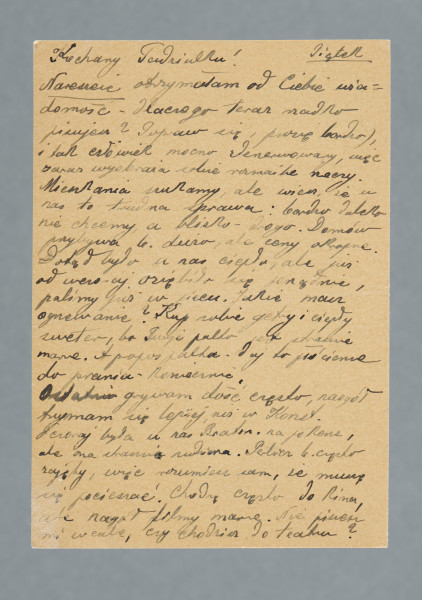 Kochany Tadziulku! Piątek
Nareszcie otrzymałam od Ciebie wia=
domość. Dlaczego teraz rzadko
piszesz? Popraw się, proszę bardzo),
i tak człowiek mocno zdenerwowany, więc
zaraz wyobraża sobie rozmaite rzeczy.
Mieszkania szukamy, ale wiesz, że u
nas to trudna sprawa: bardzo daleko
nie chcemy, a blisko - drogo. Domów
przybywa b. dużo, ale ceny okropne.
Dotąd było u nas ciepło, ale już
od wczoraj oziębiło się porządnie,
palimy już w piecu. Jakie masz
ogrzewanie? Kup sobie gruby i ciepły
sweter, bo Twoje palto jest strasznie
marne. A propos palta - daj to jesienne
do prania - koniecznie.
Ostatnio grywam dość często, naogół
trzymam się lepiej, niż w
Wczoraj była u nas na pokerze,
ale ona rodzina. b. często
zajęty, więc rozumiesz sam, że muszę
się pocieszać. Chodzę często do kina,
ale naogół filmy marne. Nie piszesz
mi wcale, czy chodzisz do teatru?